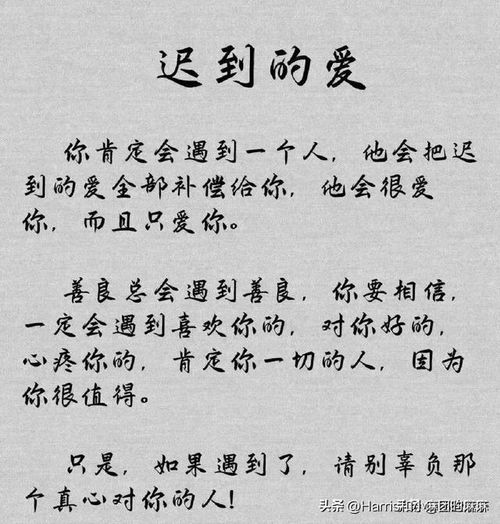 迟到的爱
你肯定会遇到一个人，他会把迟
到的爱全部补偿给你，他会很爱
你，而且只爱你。
善良总会遇到善良，你要相信，
一定会遇到喜欢你的，对你好的，
心疼你的，肯定你一切的人，因为
你很值得。
只是，如果遇到了，请别辜负那
个真心对你的人！
头条 @Harris和小